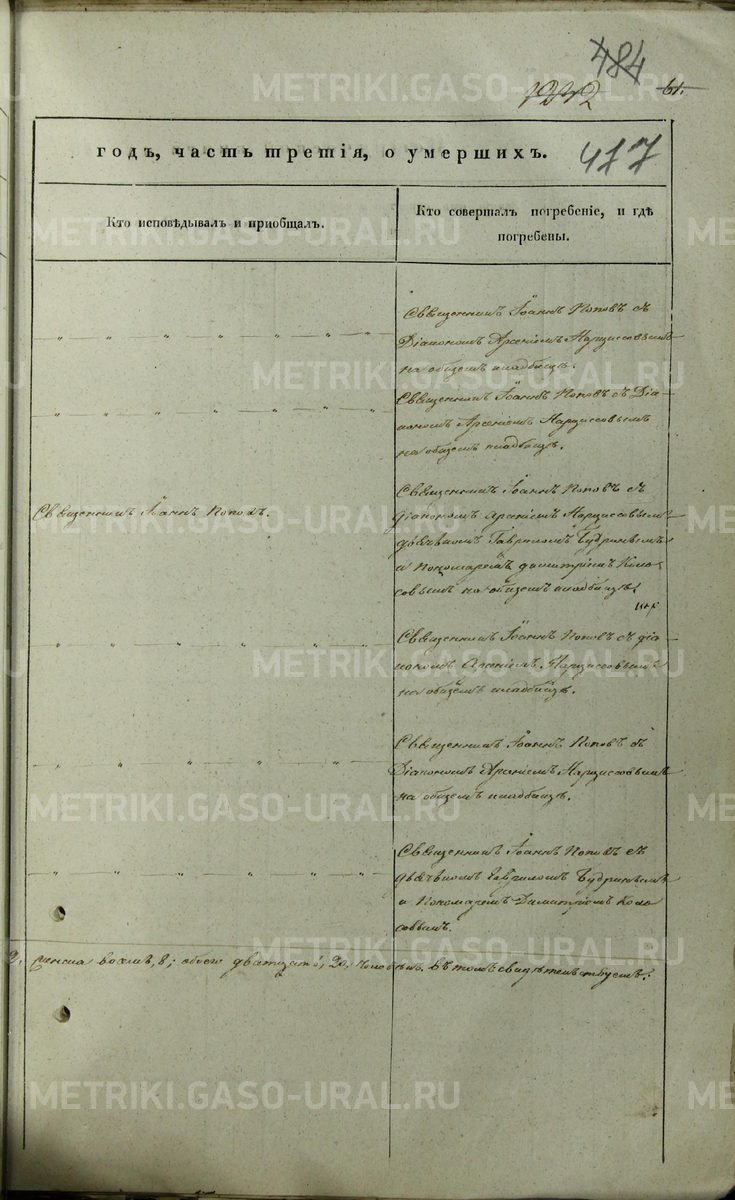 484
1232
61.
годъ, часть третія, о умершихъ.
477
Кто исповѣдывалъ и пріобщалъ.
Кто совершалъ погребеніе, и гдѣ
погребены.
Священникъ Іоаннъ Поповъ съ
Діакономъ Арсеніемъ Нарциссовымъ
на общемъ кладбищѣ.
Священникъ Іоаннъ Поповъ съ Діа-
кономъ Арсеніемъ Нарциссовымъ
на общемъ кладбищѣ.
Священникъ Іоаннъ Поповъ.
Священникъ Іоаннъ Поповъ съ
діакономъ Арсеніемъ Нарциссовымъ
дьячкомъ Гавриломъ Будринымъ
и Пономаремъ Димитріемъ Коло
совымъ на общемъ кладбищѣ
Священникъ Іоаннъ Поповъ съ діа-
кономъ Арсеніемъ Нарциссовымъ
на общемъ кладбищѣ.
Священникъ Іоаннъ Поповъ съ
Діакономъ Арсеніемъ Нарциссовымъ
на общемъ кладбищѣ.
Священникъ Іоаннъ Поповъ съ
дьячкомъ Гавриломъ Будринымъ
и Пономаремъ Димитріемъ Коло
совымъ.
женска восмь, 8; обоего дватцать, 20. человѣкъ. въ томъ свидѣтельствуемъ:
METRIKI.GASO-URAL.RU